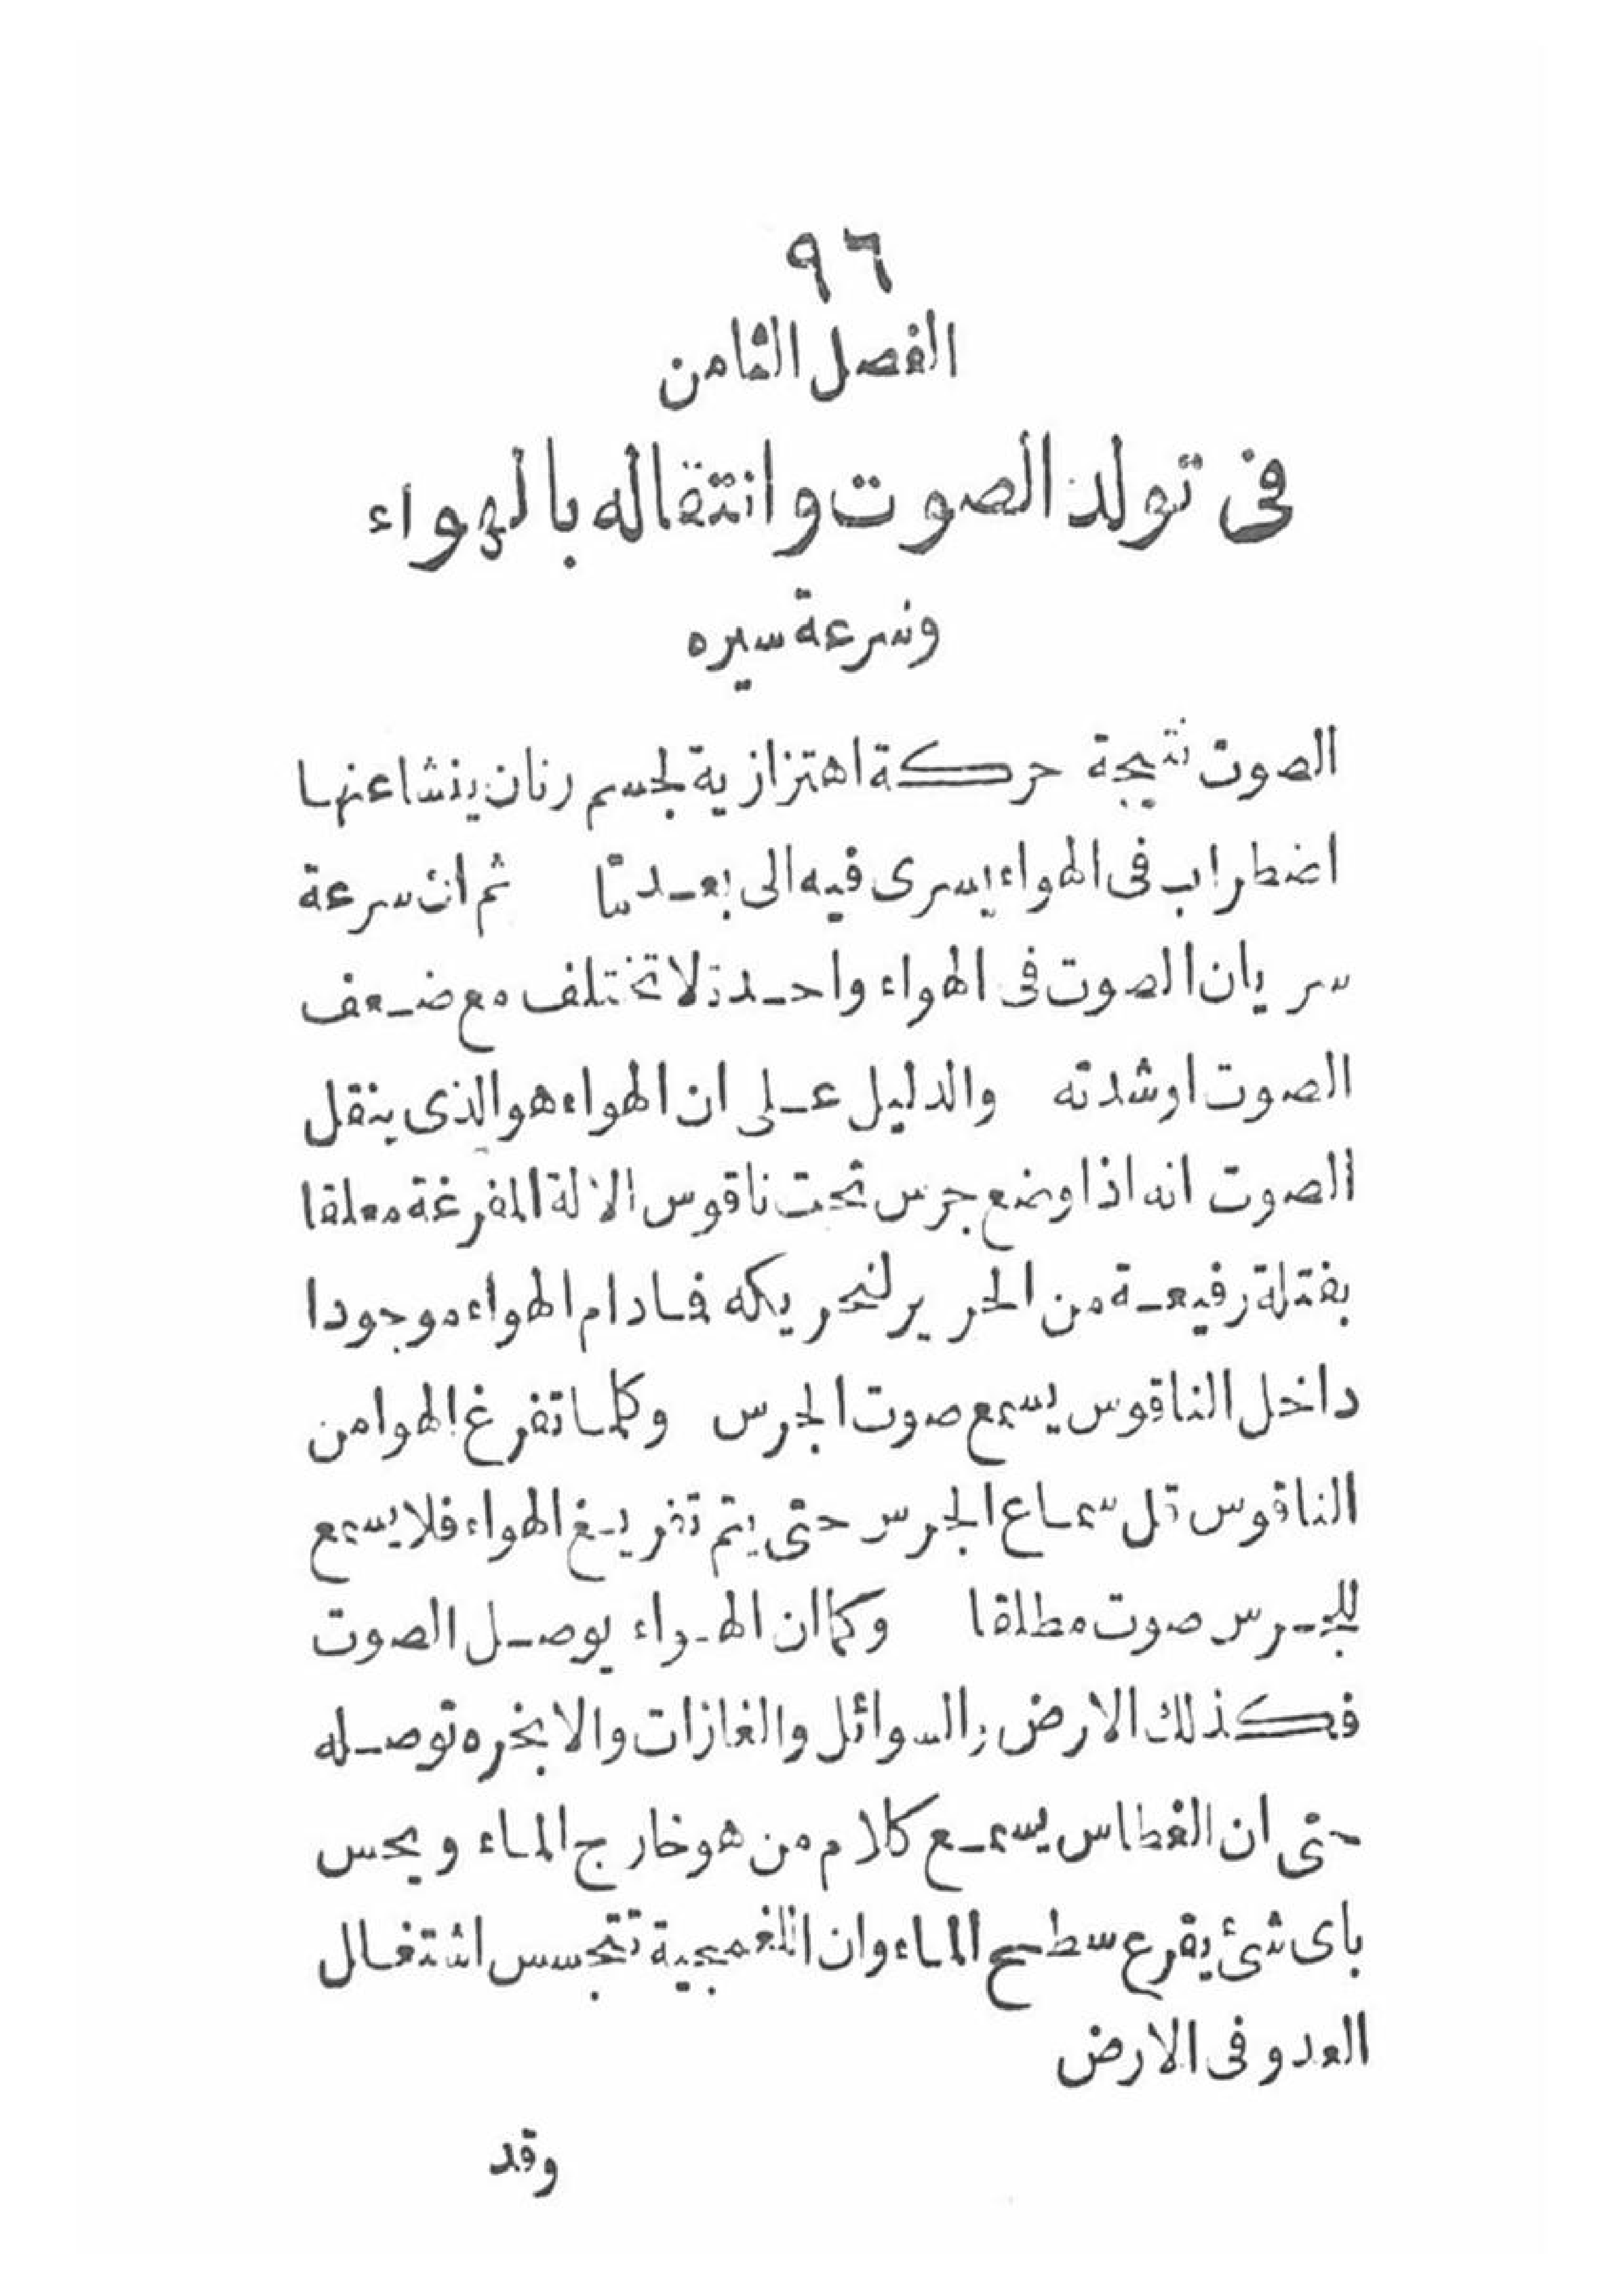 ٩٦
الفصل الثامن
فى تولد الصوت وانتقاله بالهواء
وسرعة سيره
الصوت نتيجة حركة اهتزازية لجسم رنان ينشاعنها
اضطراب فى الهواء يسرى فيه الى بعد تما ثم ان سرعة
سريان الصوت فى الهواء واحدة لا تختلف مع ضعف
الصوت اوشدته والدليل على ان الهواء هو الذى ينقل
الصوت انه اذا وضع جرس تحت ناقوس الالة المفرغة معلقا
بفتلة رفيعة من الحرير لتحريكه فادام الهواء موجودا
داخل الناقوس يسمع صوت الجرس وكلما تفرغ الهوا من
الناقوس قل سماع الجرس حتى يتم تفريغ الهواء فلا يسمع
للجرس صوت مطلقا وكما ان الهواء يوصل الصوت
فكذلك الارض والسوائل والغازات والابخره توصله
حتى ان الغطاس يسمع كلام من هو خارج الماء ويحس
باى شئ يقرع سطح الماء وان اللغمجية تتجسس اشتغال
العدو فى الارض
وقد